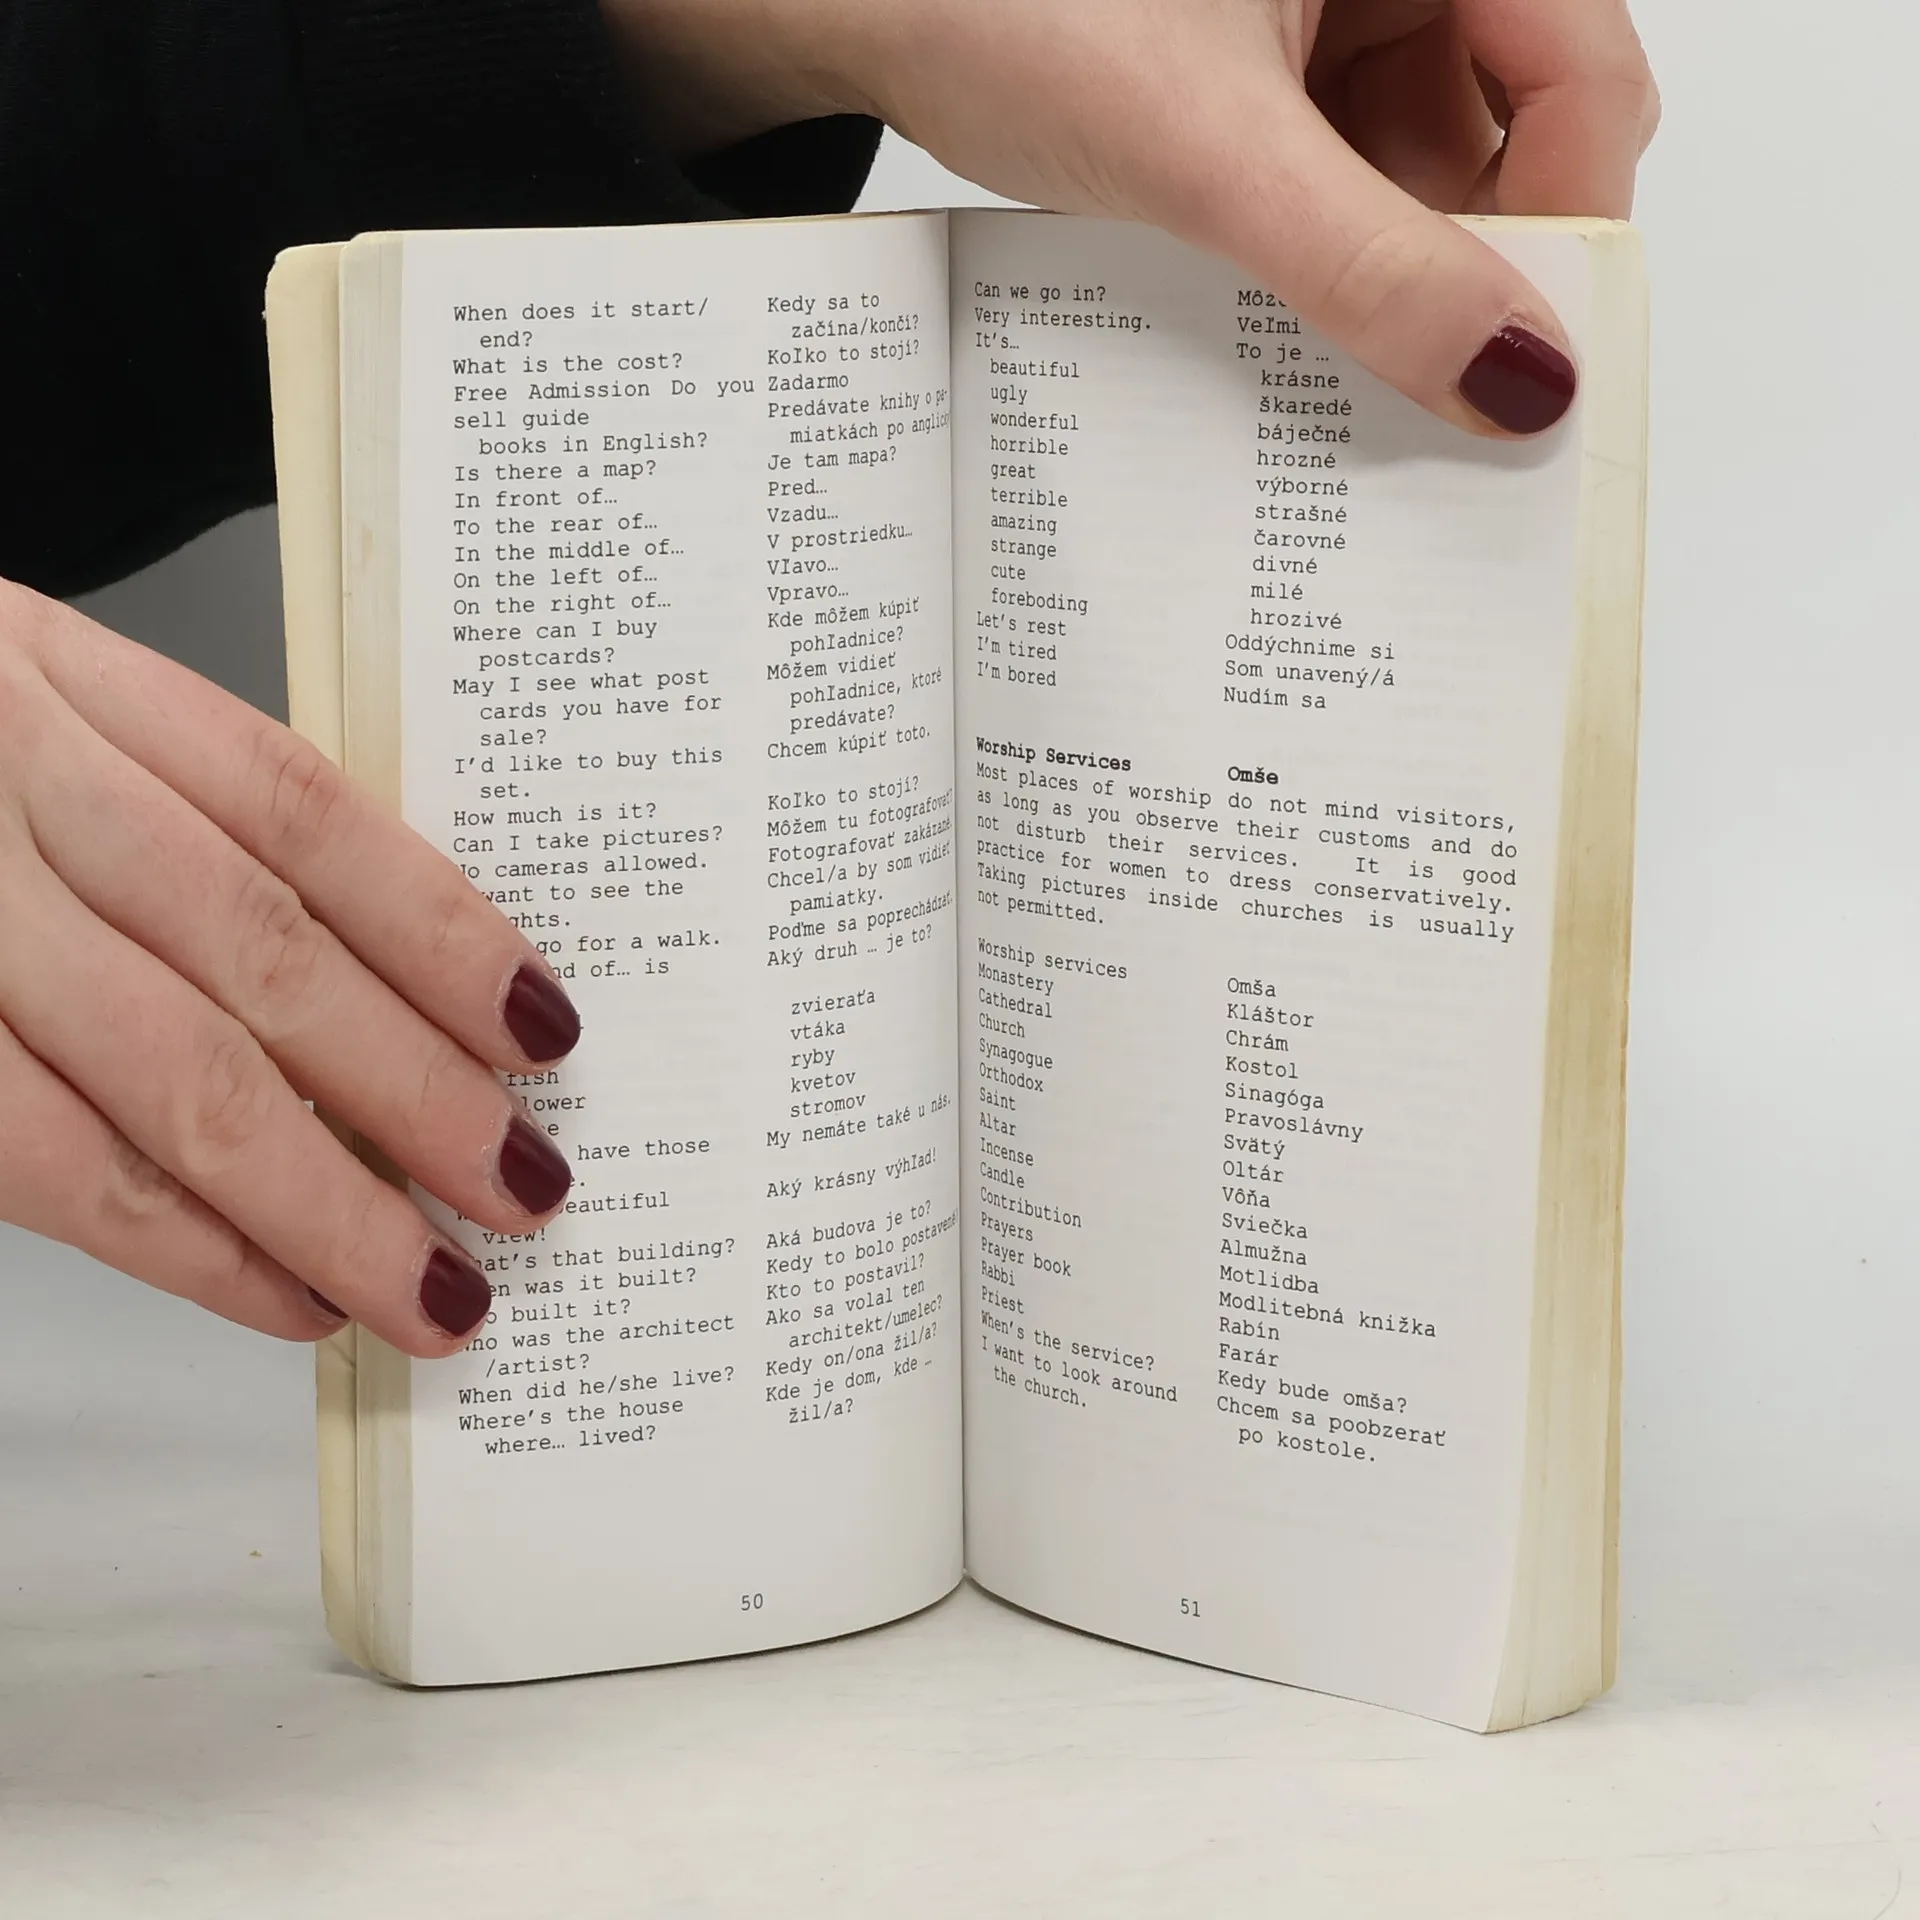 When does it start/
end?
What is the cost?
Free Admission Do you
sell guide
books in English?
Is there a map?
In front of…
To the rear of…
In the middle of…
On the left of…
On the right of…
Where can I buy
postcards?
May I see what post
cards you have for
sale?
I'd like to buy this
set.
How much is it?
Can I take pictures?
cameras allowed.
want to see the
go for a walk.
of… is
fish
have those
view!
that building?
was it built?
built it?
was the architect
/artist?
When did he/she live?
Where's the house
where… lived?
Kedy sa to
začína/končí?
Koľko to stojí?
Zadarmo
Predávate knihy o pa-
miatkách po anglicky
Je tam mapa?
Pred…
Vzadu…
V prostriedku…
Vľavo…
Vpravo…
Kde môžem kúpiť
pohľadnice?
Môžem vidieť
pohľadnice, ktoré
predávate?
Chcem kúpiť toto.
Koľko to stojí?
Môžem tu fotografovať?
Fotografovať zakázané.
Chcel/a by som vidieť
pamiatky.
Poďme sa poprechádzať.
Aký druh … je to?
zvieraťa
vtáka
ryby
kvetov
stromov
My nemáte také u nás.
Aký krásny výhľad!
Aká budova je to?
Kedy to bolo postavené?
Kto to postavil?
Ako sa volal ten
architekt/umelec?
Kedy on/ona žil/a?
Kde je dom, kde …
žil/a?
50
Can we go in?
Very interesting.
It's…
beautiful
ugly
wonderful
horrible
great
terrible
amazing
strange
cute
foreboding
Let's rest
I'm tired
I'm bored
Veľmi
To je …
krásne
škaredé
báječné
hrozné
výborné
strašné
čarovné
divné
milé
hrozivé
Oddýchnime si
Som unavený/á
Nudím sa
Worship Services Omše
Most places of worship do not mind visitors,
as long as you observe their customs and do
not disturb their services. It is good
practice for women to dress conservatively.
Taking pictures inside churches is usually
not permitted.
Worship services
Monastery
Cathedral
Church
Synagogue
Orthodox
Saint
Altar
Incense
Candle
Contribution
Prayers
Prayer book
Rabbi
Priest
When's the service?
I want to look around
the church.
Omša
Kláštor
Chrám
Kostol
Sinagóga
Pravoslávny
Svätý
Oltár
Vôňa
Sviečka
Almužna
Motlidba
Modlitebná knižka
Rabín
Farár
Kedy bude omša?
Chcem sa poobzerať
po kostole.
51